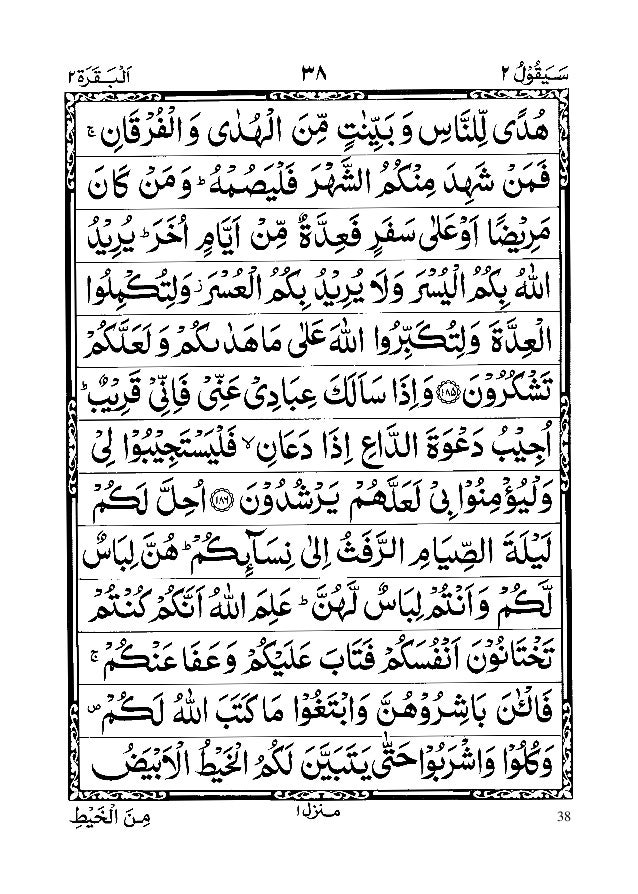 سَيَقُوْلُ ٢ ٣٨ اَلْبَقَرَة ٢
هُدًى لِّلنَّاسِ وَ بَيِّنٰتٍ مِّنَ الْهُدٰى وَ الْفُرْقَانِ ۚ
فَمَنْ شَهِدَ مِنْكُمُ الشَّهْرَ فَلْيَصُمْهُ ؕ وَ مَنْ كَانَ
مَرِيْضًا اَوْ عَلٰى سَفَرٍ فَعِدَّةٌ مِّنْ اَيَّامٍ اُخَرَ ؕ يُرِيْدُ
اللّٰهُ بِكُمُ الْيُسْرَ وَلَا يُرِيْدُ بِكُمُ الْعُسْرَ ؗ وَلِتُكْمِلُوا
الْعِدَّةَ وَلِتُكَبِّرُوا اللّٰهَ عَلٰى مَا هَدٰىكُمْ وَ لَعَلَّكُمْ
تَشْكُرُوْنَ ﴿۱۸۵﴾ وَاِذَا سَاَلَكَ عِبَادِىْ عَنِّىْ فَاِنِّىْ قَرِيْبٌ ؕ
اُجِيْبُ دَعْوَةَ الدَّاعِ اِذَا دَعَانِ ۙ فَلْيَسْتَجِيْبُوْا لِىْ
وَلْيُؤْمِنُوْا بِىْ لَعَلَّهُمْ يَرْشُدُوْنَ ﴿۱۸۶﴾ اُحِلَّ لَكُمْ
لَيْلَةَ الصِّيَامِ الرَّفَثُ اِلٰى نِسَآئِكُمْ ؕ هُنَّ لِبَاسٌ
لَّكُمْ وَ اَنْتُمْ لِبَاسٌ لَّهُنَّ ؕ عَلِمَ اللّٰهُ اَنَّكُمْ كُنْتُمْ
تَخْتَانُوْنَ اَنْفُسَكُمْ فَتَابَ عَلَيْكُمْ وَ عَفَا عَنْكُمْ ۚ
فَالْـٰٔنَ بَاشِرُوْهُنَّ وَ ابْتَغُوْا مَا كَتَبَ اللّٰهُ لَكُمْ ۪
وَ كُلُوْا وَ اشْرَبُوْا حَتّٰى يَتَبَيَّنَ لَكُمُ الْخَيْطُ الْاَبْيَضُ
مِنَ الْخَيْطِ
منزل ١
38